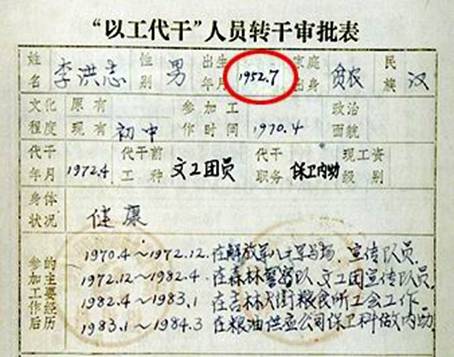 “以工代干”人员转干审批表
姓名 李洪志 性别 男 出生年月 1952.7 家庭出身 贫农 民族 汉
文化程度 原有 现有 初中 参加工作时间 1970.4 政治面貌
代干年月 1972.4 代干前工种 文工团员 代干职务 保卫内勤 现工资级别
身体状况 健康
参加工作后的主要经历
1970.4～1972.12.在解放军八一军马场,宣传队员.
1972.12～1982.4.在森林警察队文工团宣传队员.
1982.4～1983.1 在吉林大街粮食所工会工作
1983.1～1984.3 在粮油供应公司保卫科做内勤